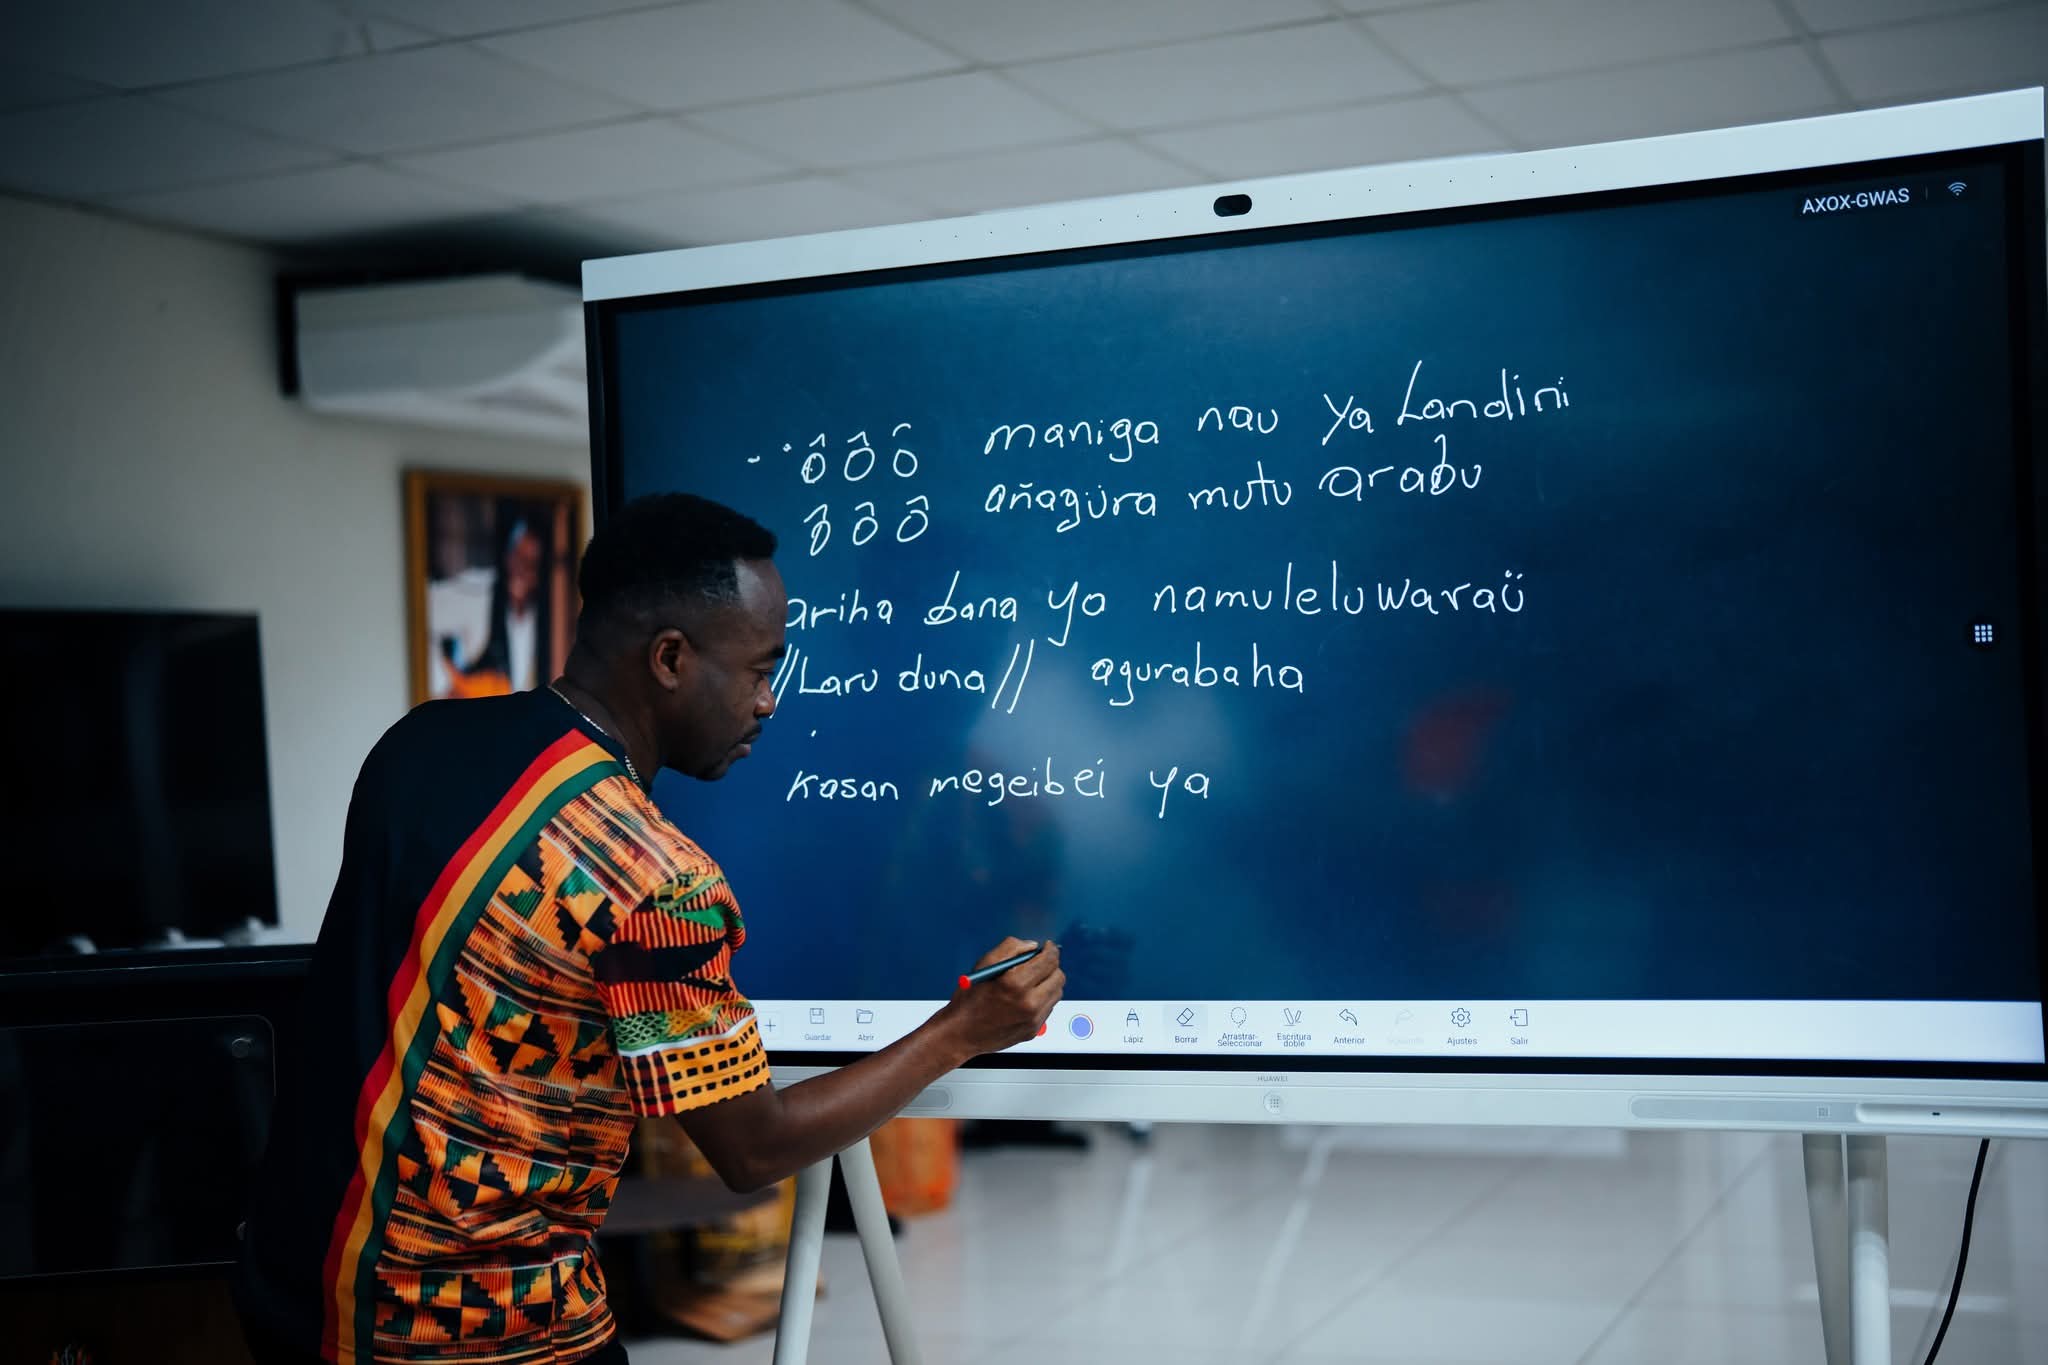 AXOX-GWAS
ôôô maniga nau ya Landini
ôôô añagüra mutu arabu
ariha bana ya namuleluwaraü
//Laru duna// agurabaha
kasan megeibei ya
Guardar Abrir Lápiz Borrar Arrastrar-Seleccionar Escritura doble Anterior Siguiente Ajustes Salir
HUAWEI